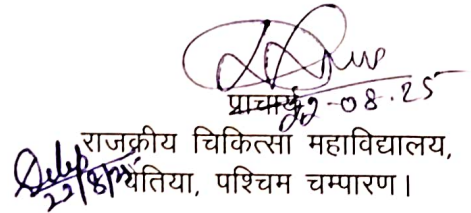 प्राचार्य
22-08-25
राजकीय चिकित्सा महाविद्यालय,
22/8/25
बेतिया, पश्चिम चम्पारण।